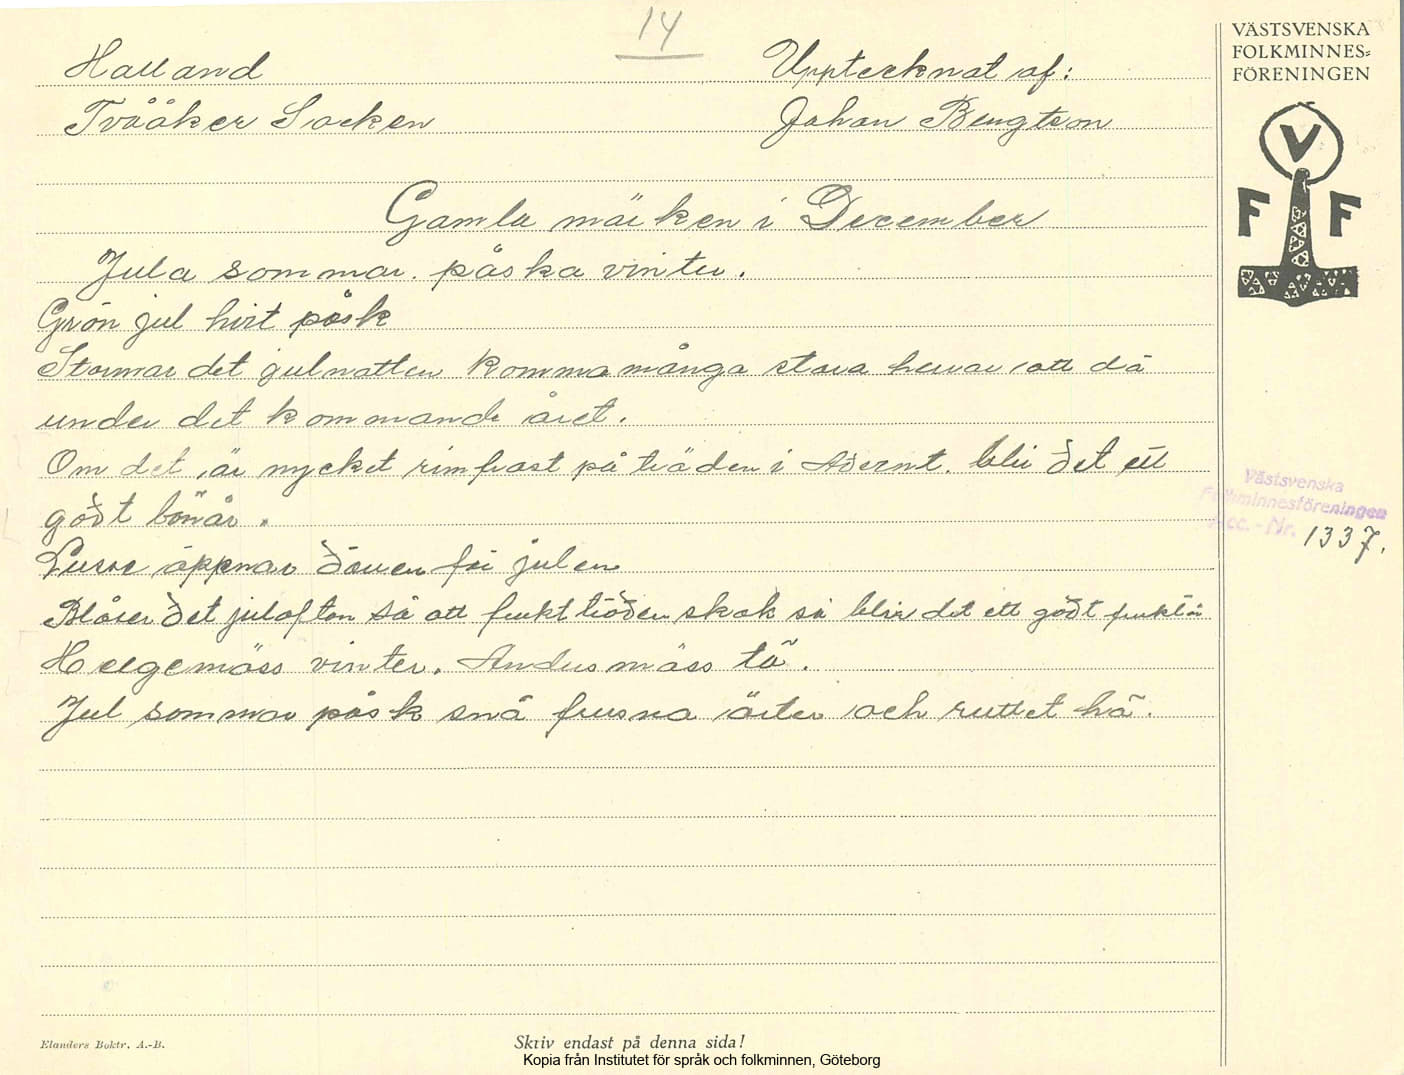 14
Halland
Upptecknat af:
Tvååker Socken
Johan Bengtson
VÄSTSVENSKA
FOLKMINNES=
FÖRENINGEN
V
F F
Gamla märken i December
Jula sommar. påska vinter.
Grön jul hvit påsk
Stormar det julnatten komma många stora herrar att dö
under det kommande året.
Om det är mycket rimfrost på träden i Advent. blir det ett
godt bönår.
Lusse öppnar dörren för julen
Blåser det julafton så att fruktträden skak så blir det ett godt fruktår
Helgemäss vinter. Andusmäss tö.
Jul sommar påsk snö frusna ärter och ruttet hö.
Västsvenska
Folkminnesföreningen
Acc.-Nr. 1337.
Elanders Boktr. A.-B.
Skriv endast på denna sida!
Kopia från Institutet för språk och folkminnen, Göteborg